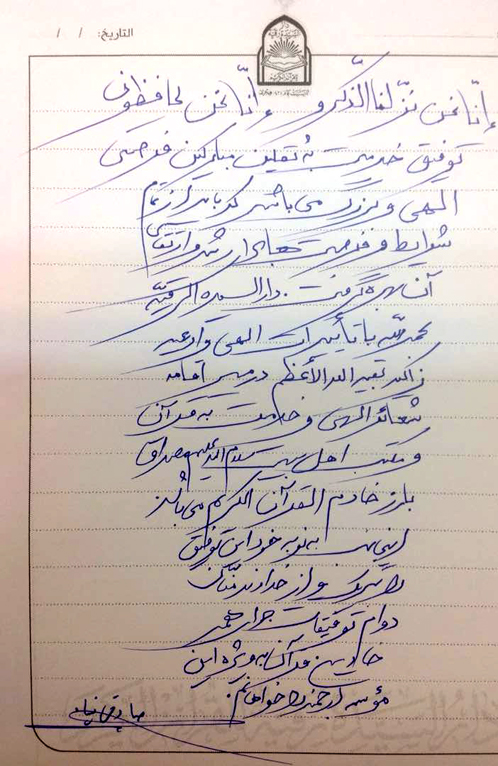 التاريخ: / /
إنّا نحن نزّلنا الذّكر و إنّا نحن لحافظون
توفیق خدمت به ثقلین مبارکین فرصتی
الهی و بزرگ می باشد که باید از تمام
شرایط و فرصت های برای رشد و ارتقای
آن بهره گرفت. دار السیدة الرقیّة
بحمدالله با تأییدات الهی و ادعیه
بقیة الله الأعظم در مسیر اقامه
شعائر الهی و خدمت به قرآن
و مکتب اهل بیت سلام الله علیهم مصداق
بارز خادم القرآن الکریم می باشد
اینجانب به نوبه خود این توفیق
را تبریک و از خداوند منّان
دوام توفیقات برای
خادمین قرآن به ویژه این
مؤسسه ارجمند را خواهانم.